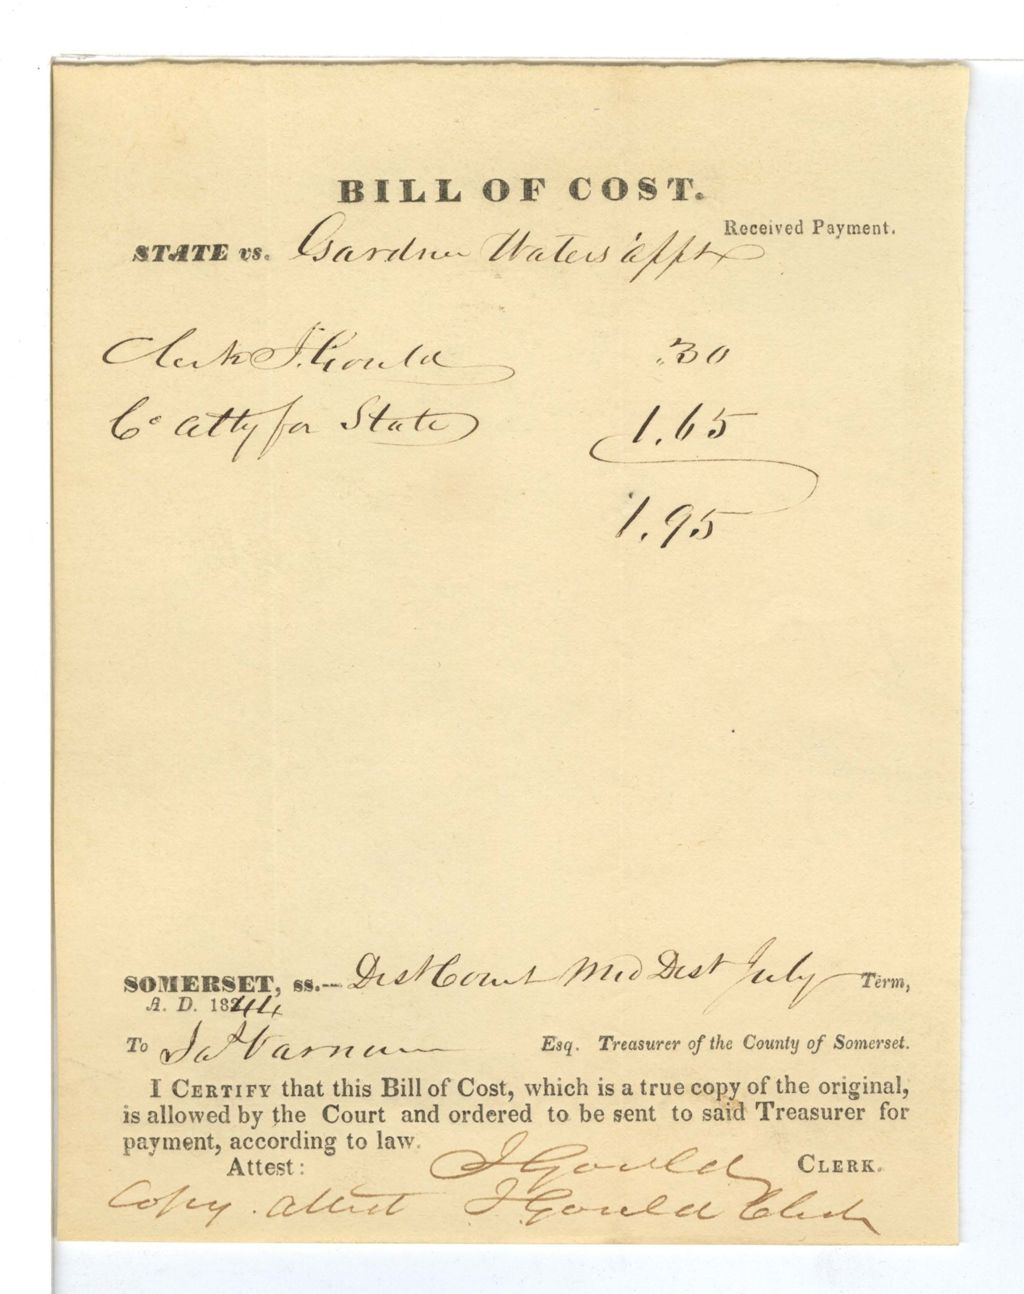 BILL OF COST.
Received Payment.
STATE vs. Gardner Waters applt
Clerk J. Gould .30
Co Atty for State 1.65
1.95
SOMERSET, ss.— Dist Court Mid Dist July Term,
A. D. 1844
To Varnum Esq. Treasurer of the County of Somerset.
I CERTIFY that this Bill of Cost, which is a true copy of the original,
is allowed by the Court and ordered to be sent to said Treasurer for
payment, according to law.
Attest: J Gould CLERK.
Copy. Attest J Gould Clerk